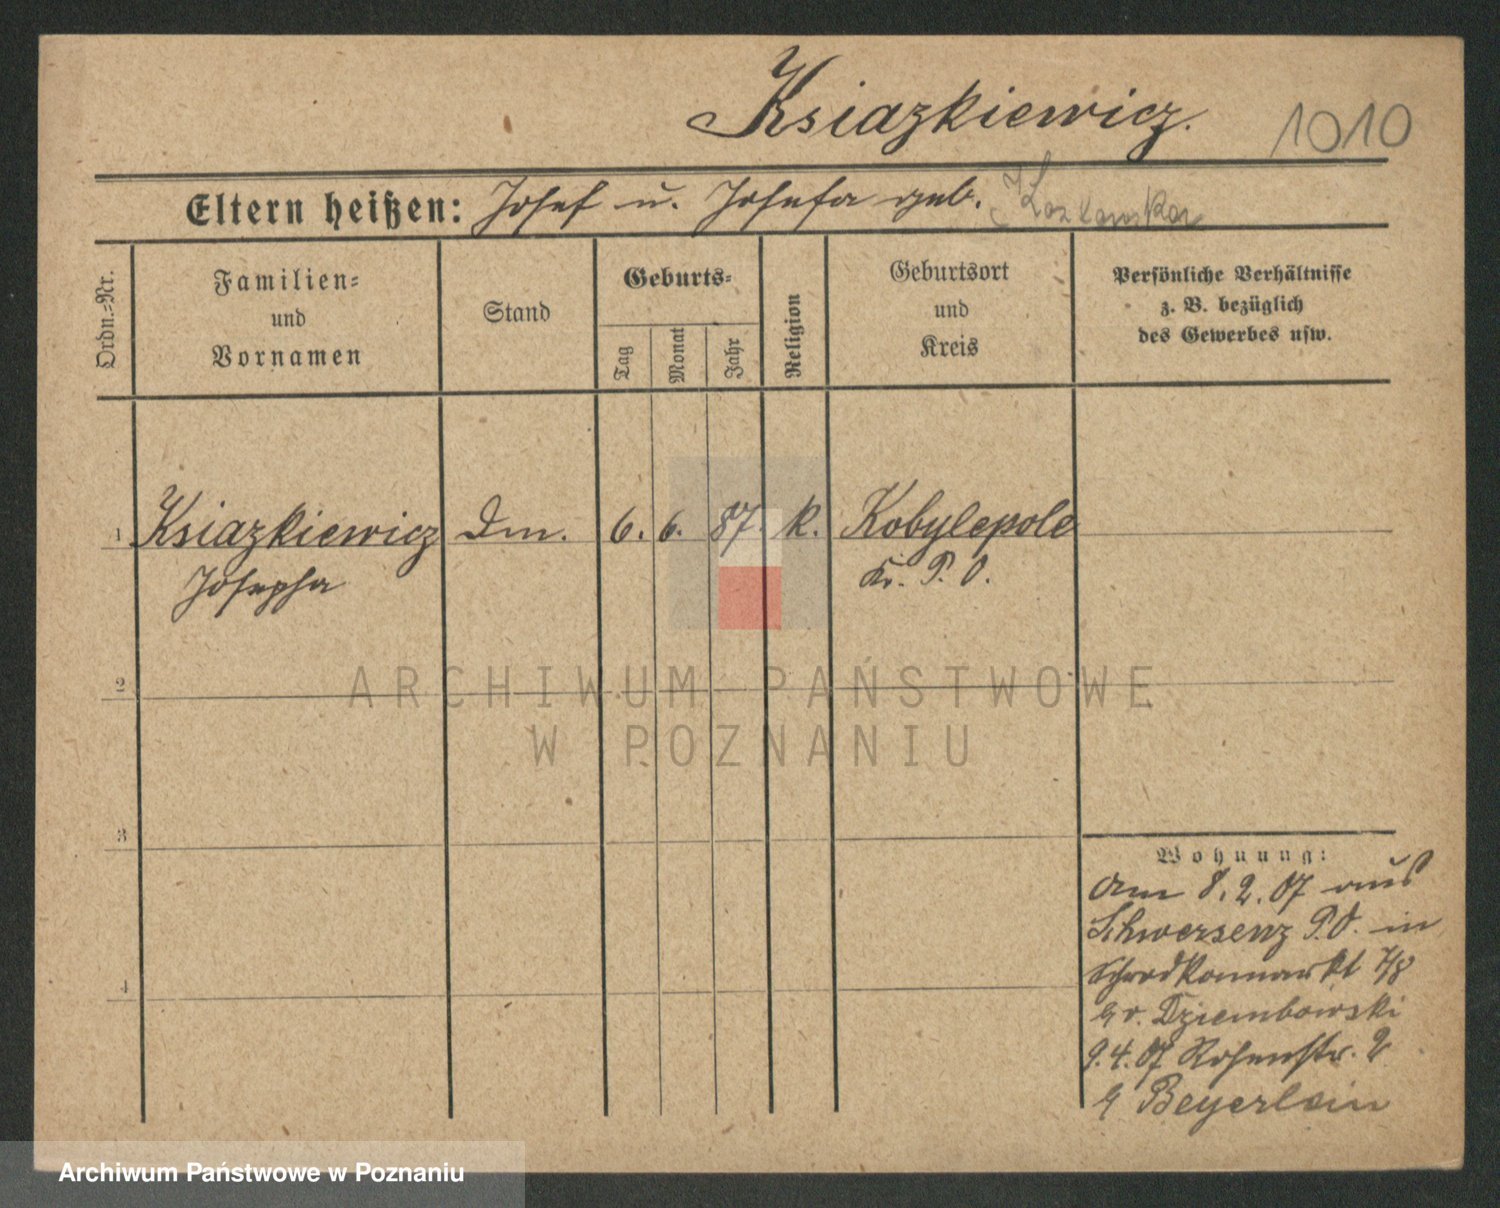 Ksiazkiewicz.
1010
Eltern heißen: Josef u. Josefa geb.
Ordn.-Nr.
Familien-
und
Vornamen
Stand
Geburts-
Tag
Monat
Jahr
Religion
Geburtsort
und
Kreis
Persönliche Verhältnisse
z. B. bezüglich
des Gewerbes usw.
1 Ksiazkiewicz Dm. 6. 6. 87. k. Kobylepole
Josepha Kr. P. O.
2
ARCHIWUM PAŃSTWOWE
W POZNANIU
3
4
Wohnung:
am 8.2.07 aus
Schwersenz P.O. in
7/8
v. Dziembowski
9.4.07 Rosenstr. 2
Beyerlein
Archiwum Państwowe w Poznaniu